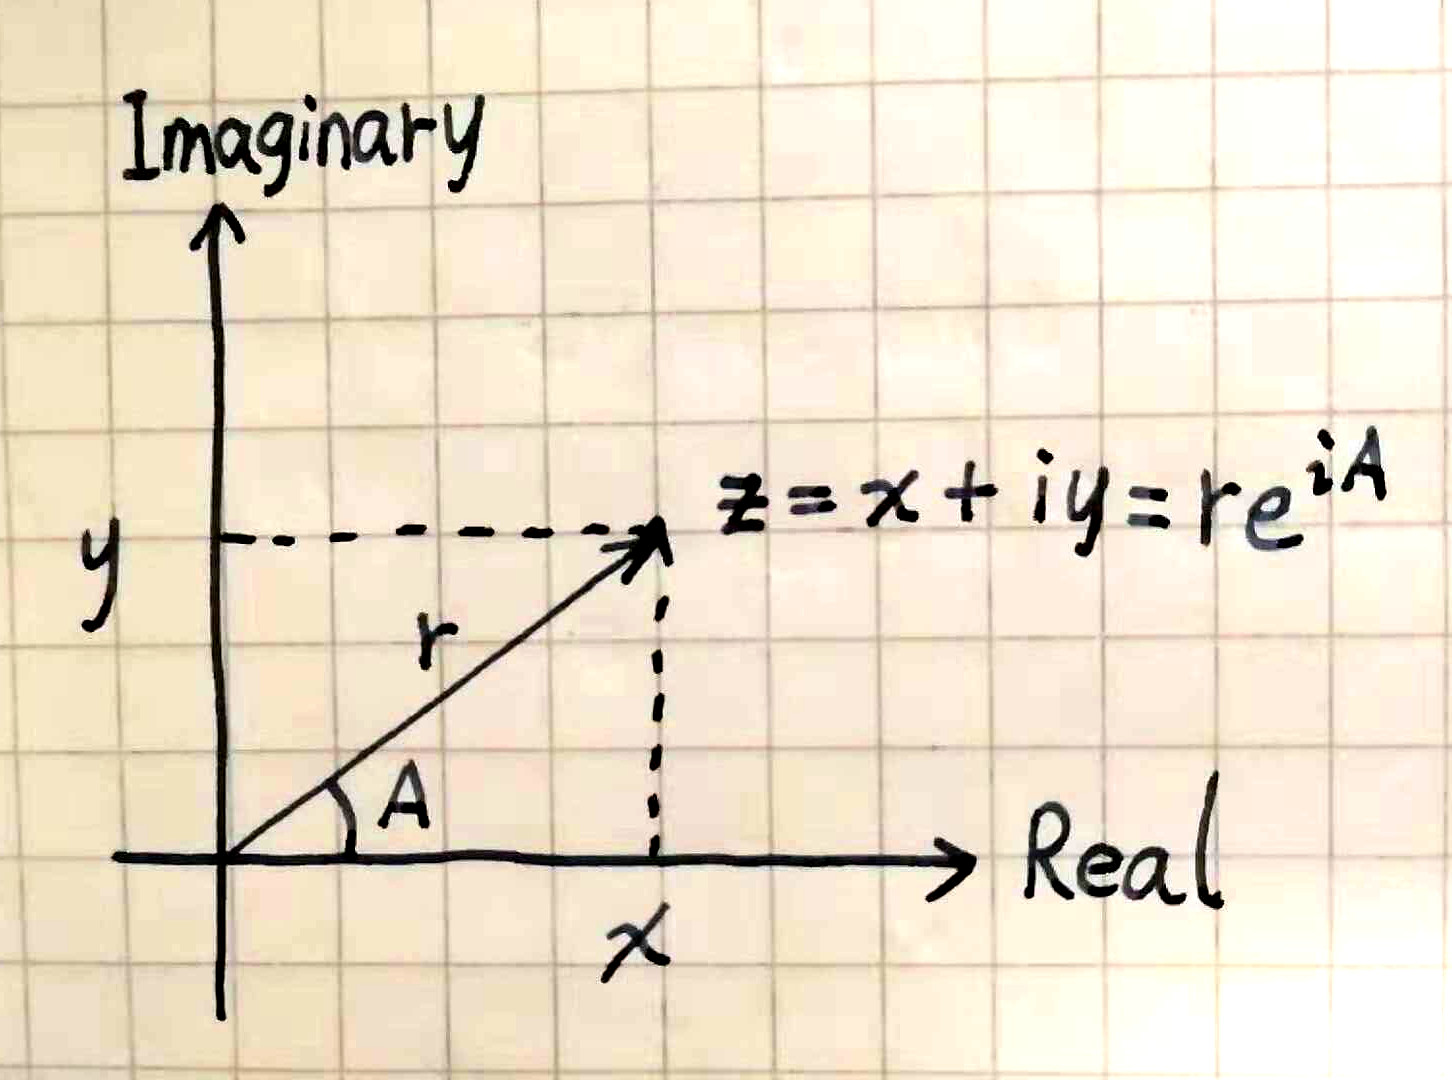 Imaginary
z = x + iy = re^{iA}
y
r
A
Real
x